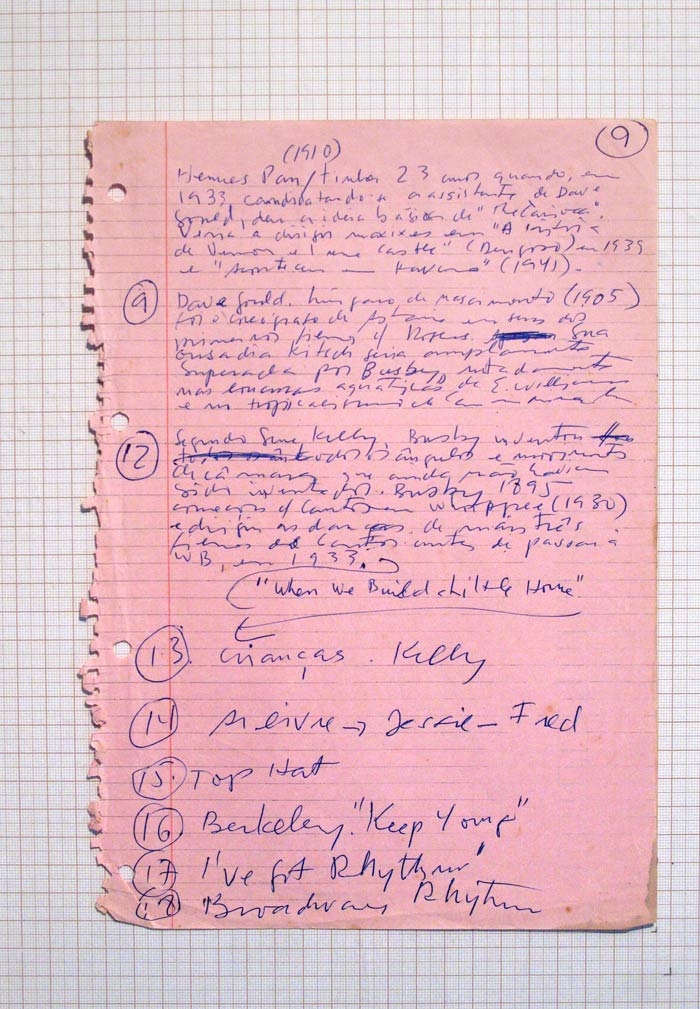 9
(1910)
Hermes Pan, tinha 23 anos quando, em
1933, candidatando-se a assistente de Dave
Gould, deu a ideia básica de "
Viria a dirigir maxixes em "A História
de Vernon e Irene Castle" em 1939
e "Aconteceu em Havana" (1941).
9 Dave Gould, húngaro de nascimento (1905)
foi o coreógrafo de Astaire em seus dois
primeiros filmes c/ Rogers. Sua
ousadia Kitsch seria amplamente
superada por Busby, notadamente
nas aquáticas de E. Williams
e no
12 Segundo Gene Kelly, Busby inventou
todos os ângulos e movimentos
de câmara que ainda não haviam
sido inventados. Busby 1895
começou c/ Cantor em Whoopee (1930)
e dirigiu as danças de mais três
filmes de Cantor antes de passar à
WB, em 1933.
"When We Build a Little Home"
13. crianças. Kelly
14 → Jessie - Fred
15. Top Hat
16 Berkeley. "Keep Young"
17 I've got Rhythm"
18 "Broadway Rhythm